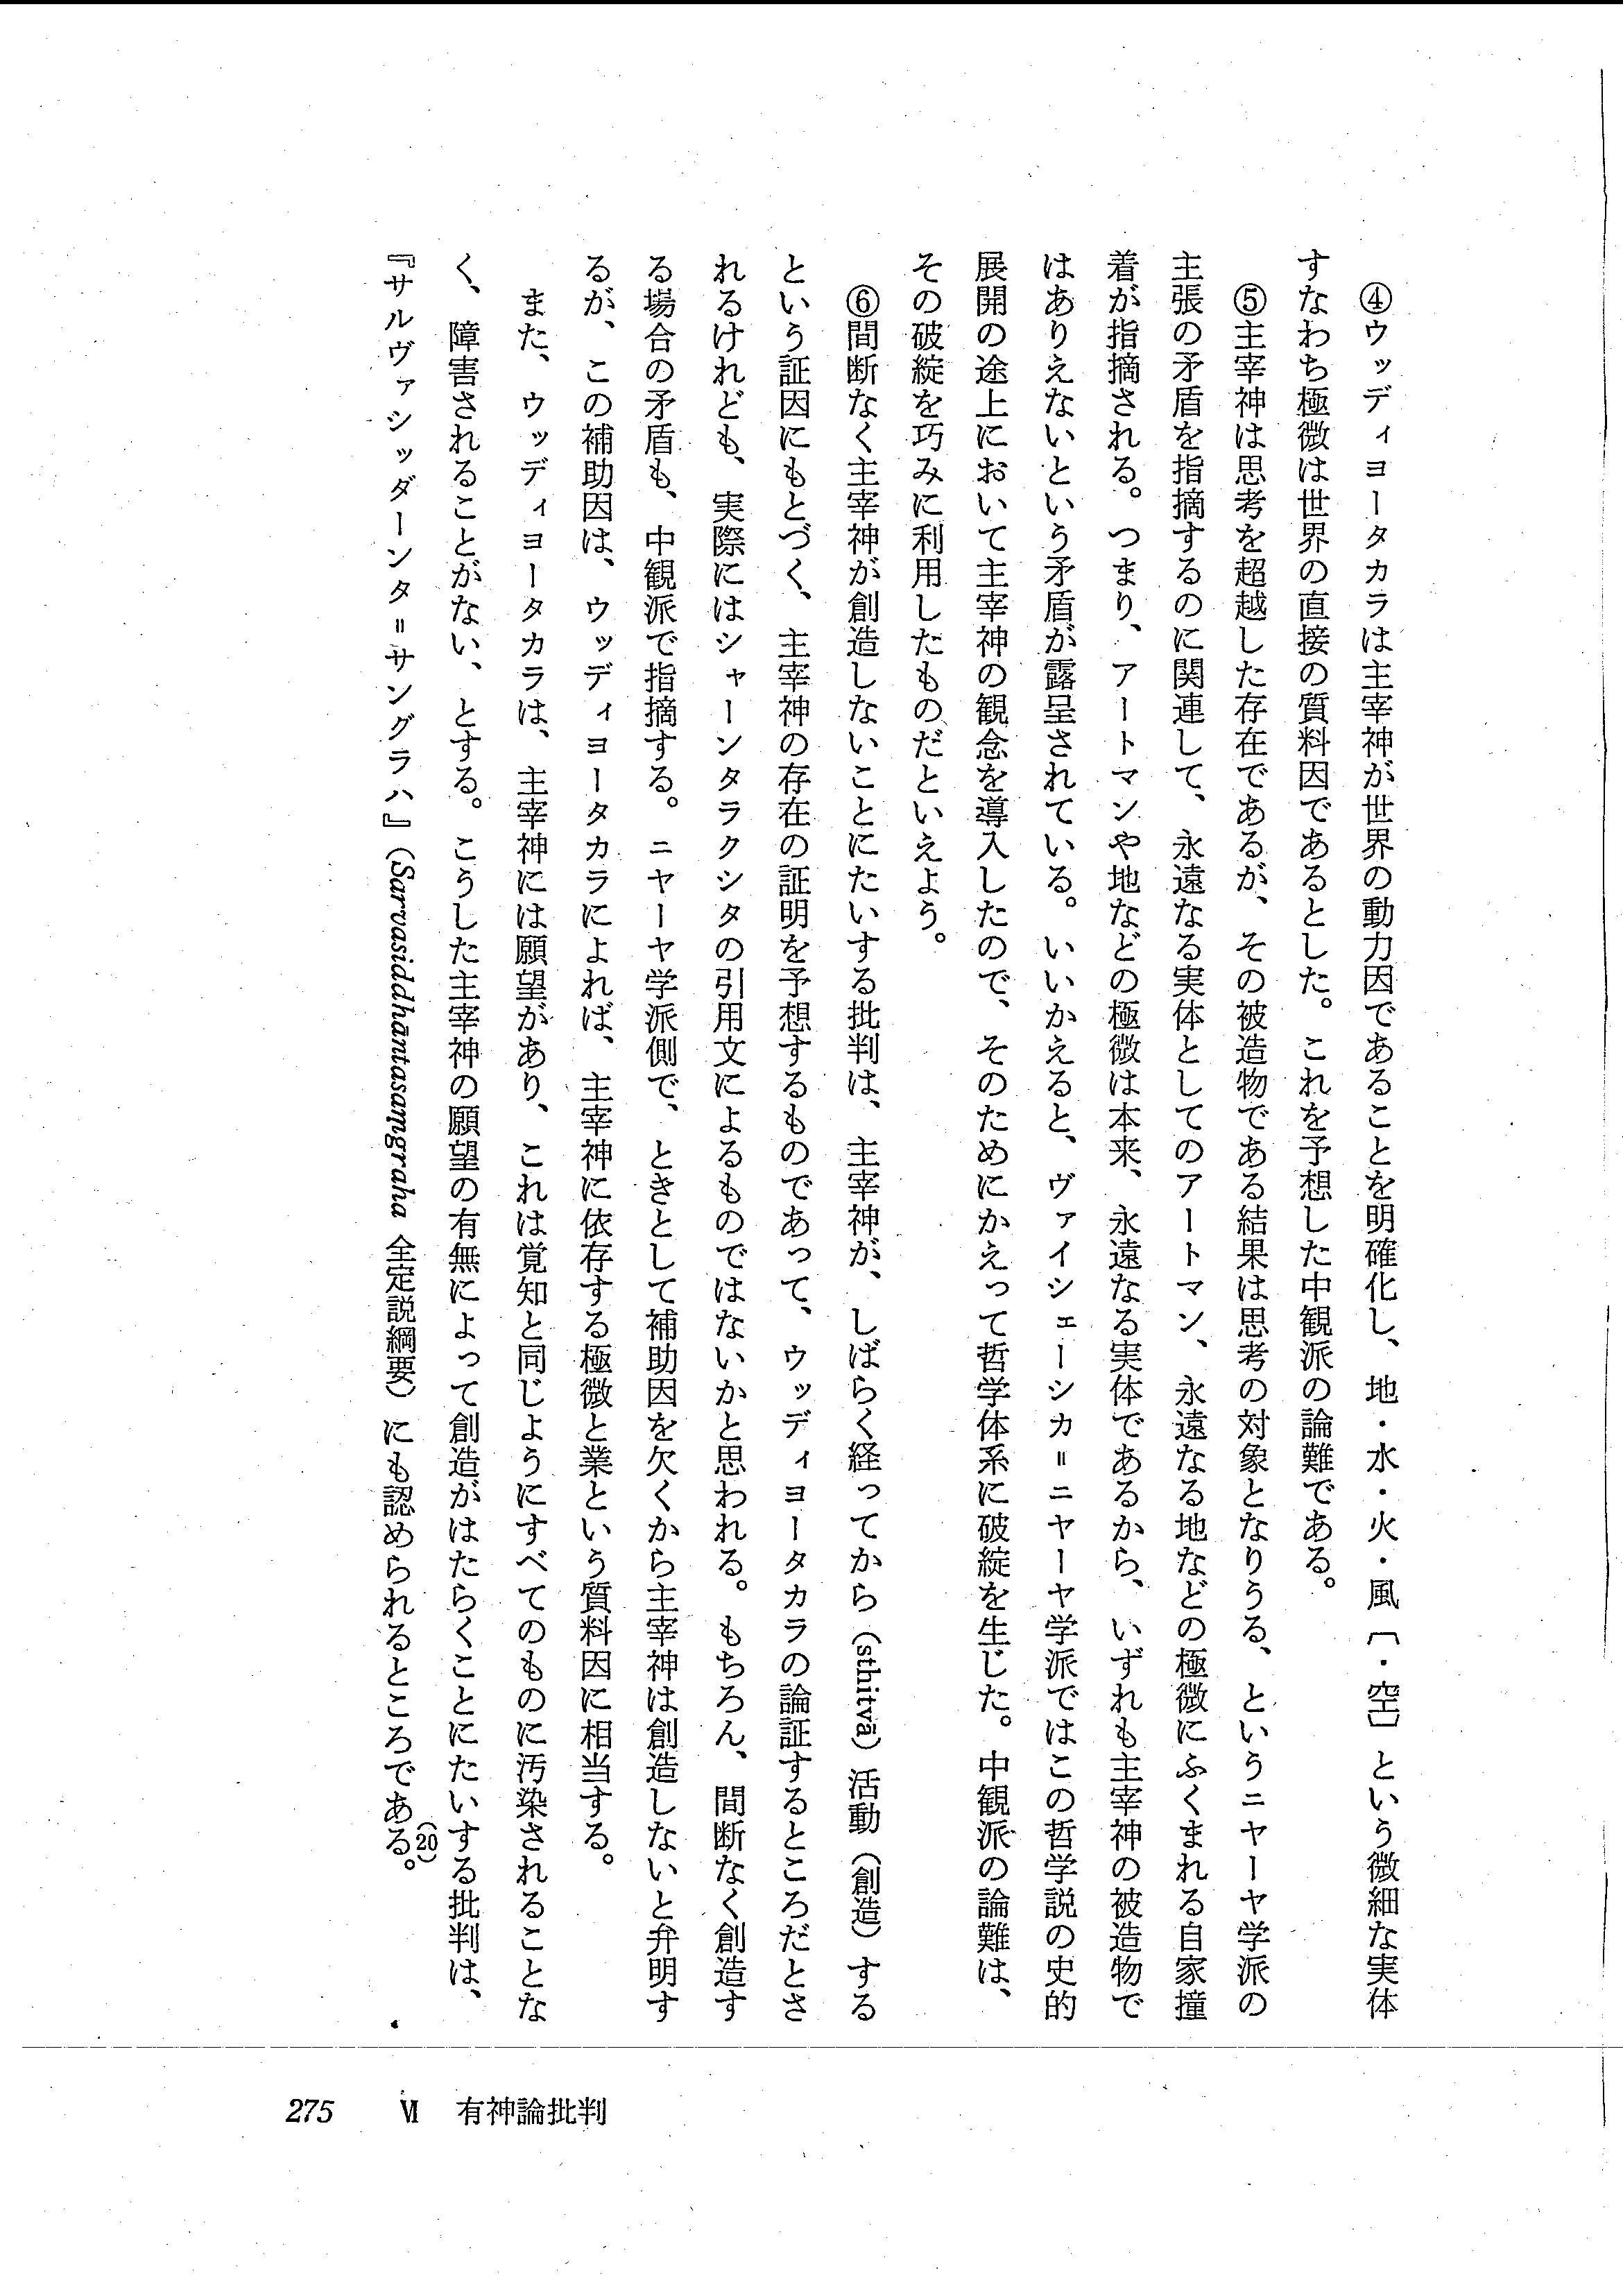 ④ウッディヨータカラは主宰神が世界の動力因であることを明確化し、地・水・火・風〔・空〕という微細な実体
すなわち極微は世界の直接の質料因であるとした。これを予想した中観派の論難である。
⑤主宰神は思考を超越した存在であるが、その被造物である結果は思考の対象となりうる、というニヤーヤ学派の
主張の矛盾を指摘するのに関連して、永遠なる実体としてのアートマン、永遠なる地などの極微にふくまれる自家撞
着が指摘される。つまり、アートマンや地などの極微は本来、永遠なる実体であるから、いずれも主宰神の被造物で
はありえないという矛盾が露呈されている。いいかえると、ヴァイシェーシカ＝ニヤーヤ学派ではこの哲学説の史的
展開の途上において主宰神の観念を導入したので、そのためにかえって哲学体系に破綻を生じた。中観派の論難は、
その破綻を巧みに利用したものだといえよう。
⑥間断なく主宰神が創造しないことにたいする批判は、主宰神が、しばらく経ってから（sthitvā）活動（創造）する
という証因にもとづく、主宰神の存在の証明を予想するものであって、ウッディヨータカラの論証するところだとさ
れるけれども、実際にはシャーンタラクシタの引用文によるものではないかと思われる。もちろん、間断なく創造す
る場合の矛盾も、中観派で指摘する。ニヤーヤ学派側で、ときとして補助因を欠くから主宰神は創造しないと弁明す
るが、この補助因は、ウッディヨータカラによれば、主宰神に依存する極微と業という質料因に相当する。
また、ウッディヨータカラは、主宰神には願望があり、これは覚知と同じようにすべてのものに汚染されることな
く、障害されることがない、とする。こうした主宰神の願望の有無によって創造がはたらくことにたいする批判は、
『サルヴァシッダーンタ＝サングラハ』（Sarvasiddhāntasaṃgraha 全定説綱要）にも認められるところである。(20)
275 Ⅵ 有神論批判